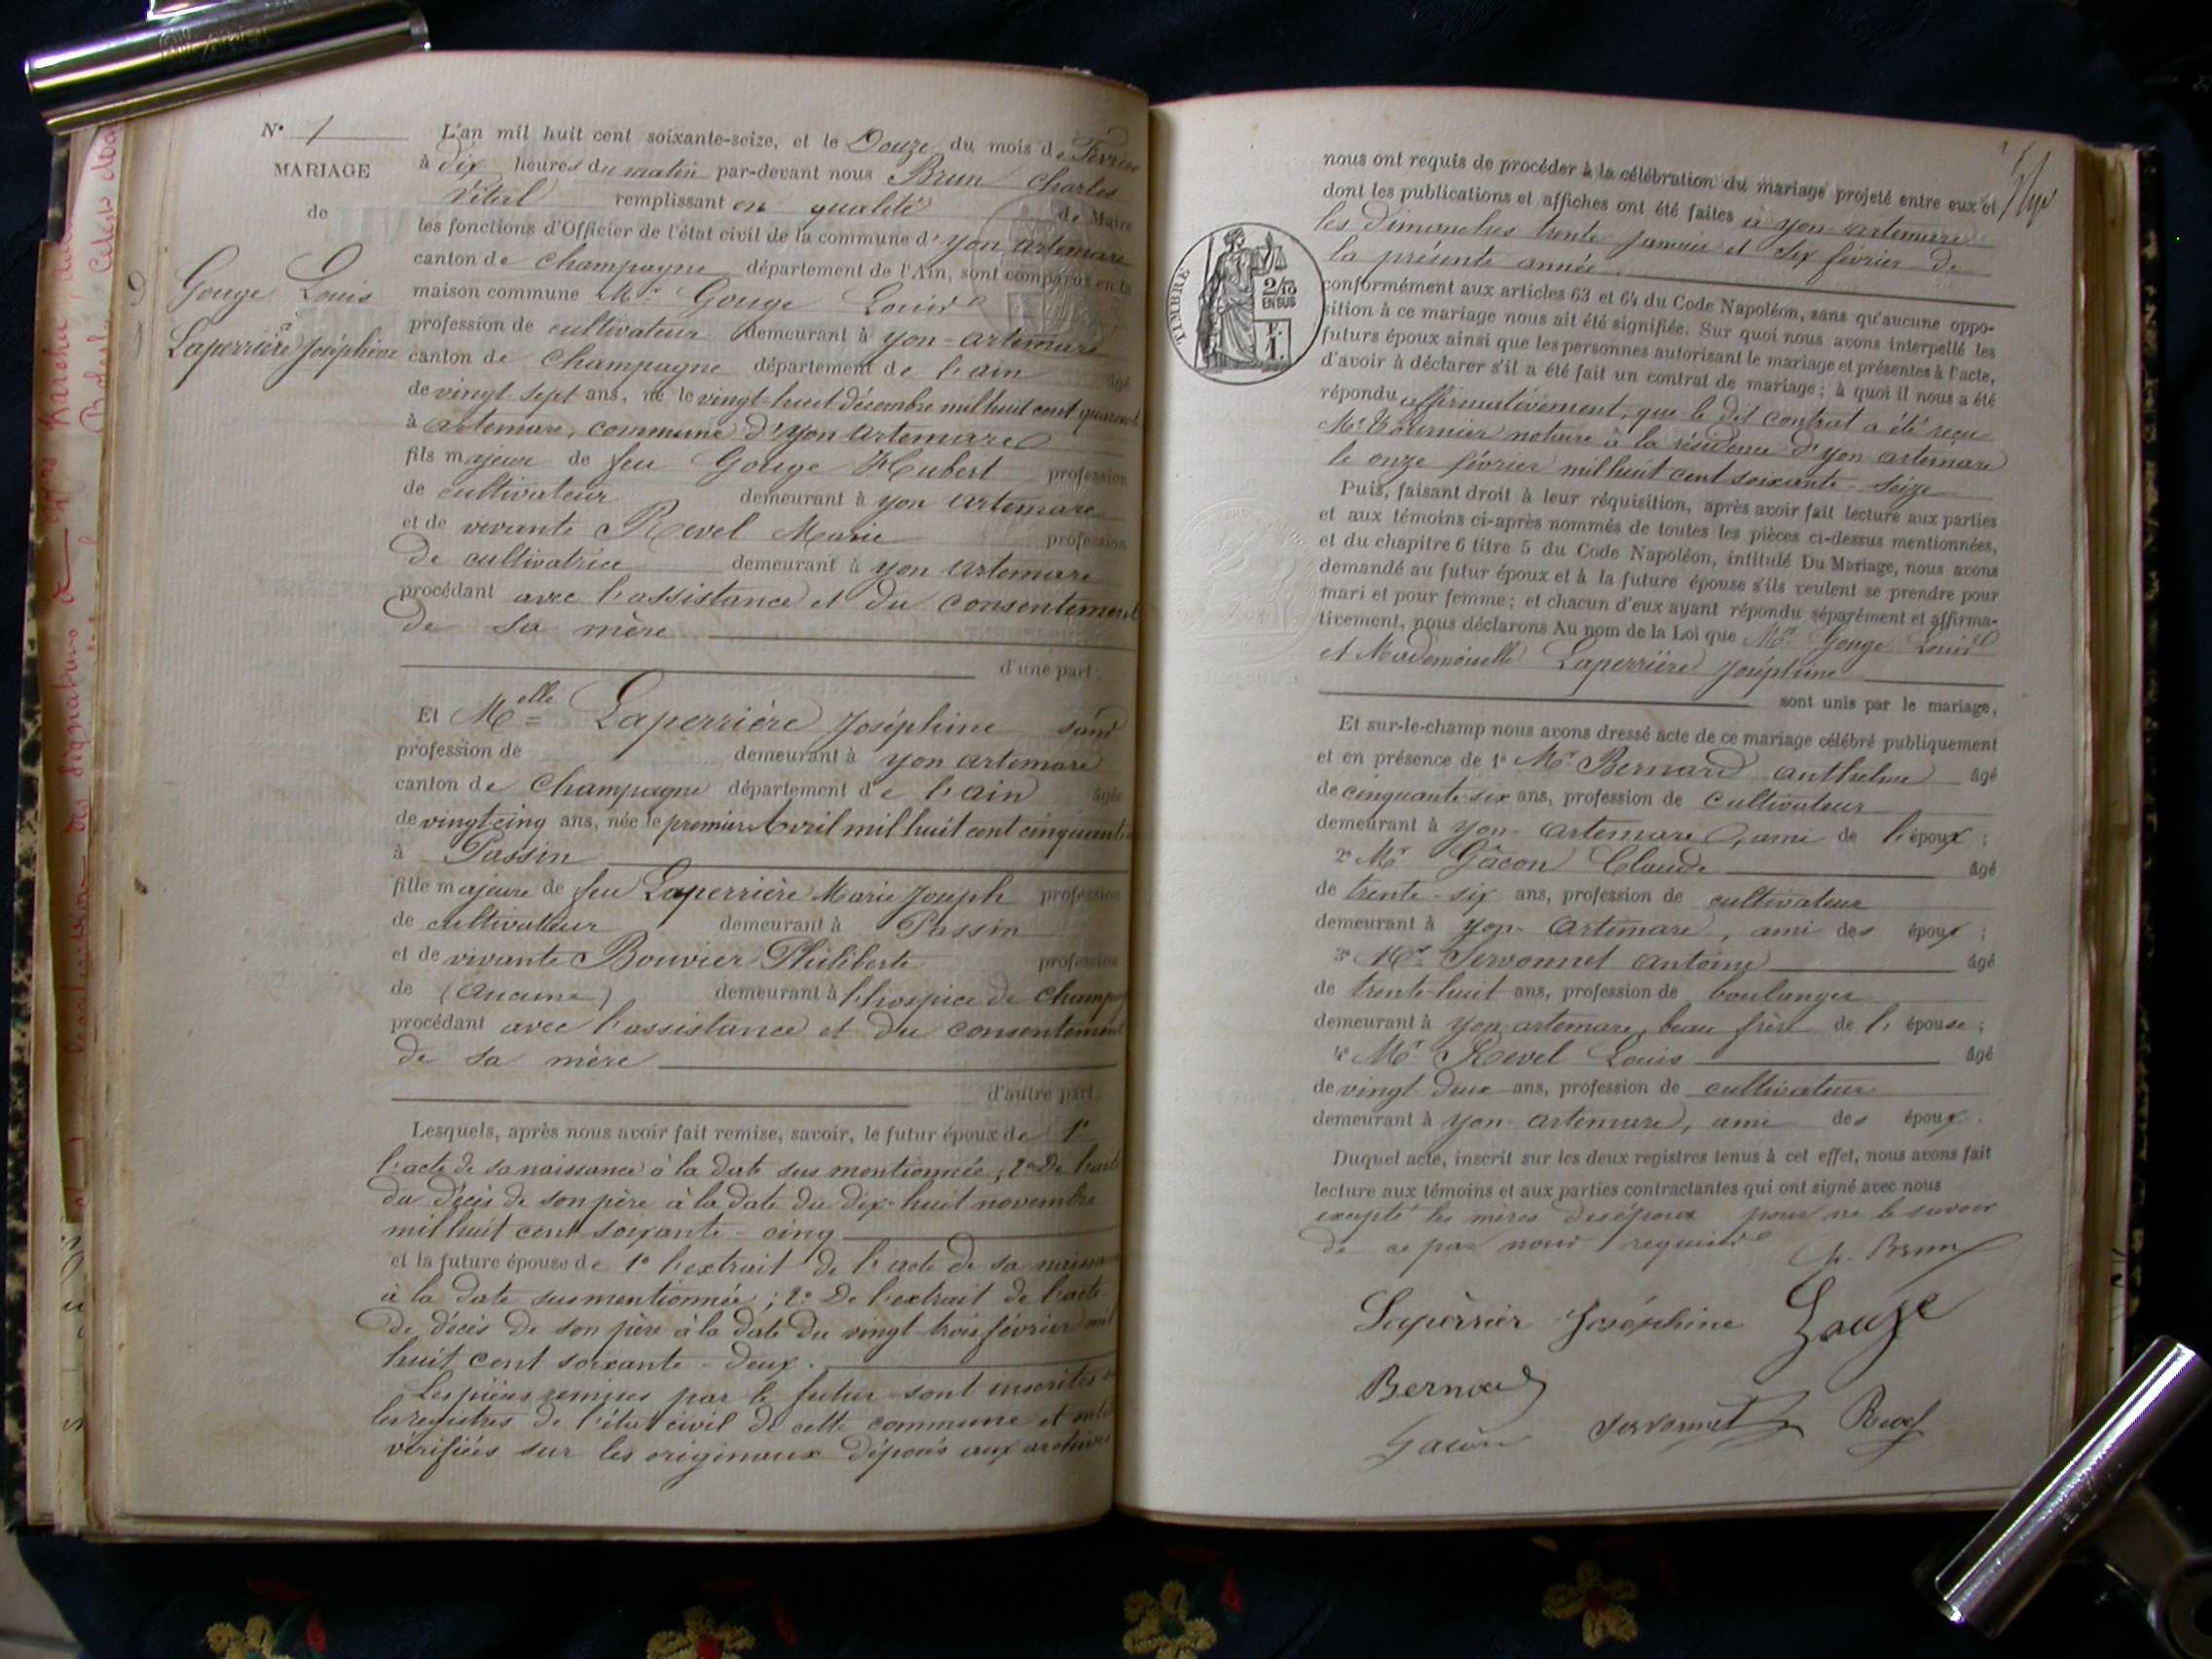 N° 1
MARIAGE
de
Gouge Louis
à
Laperrière Joséphine
L'an mil huit cent soixante-seize, et le Douze du mois de Février
à dix heures du matin par-devant nous Brun Charles
Vital remplissant en qualité de Maire
les fonctions d'Officier de l'état civil de la commune d'yon artemare
canton de Champagne département de l'Ain, sont comparus en la
maison commune Mr. Gouge Louis
profession de cultivateur demeurant à yon-artemare
canton de Champagne département de l'ain âgé
de vingt sept ans, né le vingt-huit décembre mil huit cent quarante
à artemare, commune d'yon artemare
fils majeur de feu Gouge Hubert profession
de cultivateur demeurant à yon artemare
et de vivante Revel Marie profession
de cultivatrice demeurant à yon artemare
procédant avec l'assistance et du consentement
de sa mère
d'une part;
Et Melle Laperrière Joséphine sans
profession de demeurant à yon artemare
canton de Champagne département de l'ain âgée
de vingt cinq ans, née le premier Avril mil huit cent cinquante
à Passin
fille majeure de feu Laperrière Marie Joseph profession
de cultivateur demeurant à Passin
et de vivante Bouvier Philiberte profession
de (Aucune) demeurant à l'hospice de Champ
procédant avec l'assistance et du consentement
de sa mère
d'autre part;
Lesquels, après nous avoir fait remise, savoir, le futur époux de 1°
l'acte de sa naissance à la date sus mentionnée; 2° De l'acte
du décès de son père à la date du dix-huit novembre
mil huit cent soixante-cinq
et la future épouse de 1° l'extrait de l'acte de sa naissance
à la date susmentionnée; 2° De l'extrait de l'acte
De décès de son père à la date du vingt-trois février mil
huit cent soixante-deux.
Les pièces remises par le futur sont inscrites
les registres de l'état civil de cette commune et
vérifiées sur les originaux déposés aux archives
nous ont requis de procéder à la célébration du mariage projeté entre eux et
dont les publications et affiches ont été faites à yon-artemare
les dimanches trente janvier et six février de
la présente année.
TIMBRE
2/10
EN SUS
F.
1.
conformément aux articles 63 et 64 du Code Napoléon, sans qu'aucune oppo-
sition à ce mariage nous ait été signifiée. Sur quoi nous avons interpellé les
futurs époux ainsi que les personnes autorisant le mariage et présentes à l'acte,
d'avoir à déclarer s'il a été fait un contrat de mariage; à quoi il nous a été
répondu affirmativement, que le dit contrat a été reçu
Mr Tournier notaire à la résidence d'yon artemare
le onze février mil huit cent soixante-seize
Puis, faisant droit à leur réquisition, après avoir fait lecture aux parties
et aux témoins ci-après nommés de toutes les pièces ci-dessus mentionnées,
et du chapitre 6 titre 5 du Code Napoléon, intitulé Du Mariage, nous avons
demandé au futur époux et à la future épouse s'ils veulent se prendre pour
mari et pour femme; et chacun d'eux ayant répondu séparément et affirma-
tivement, nous déclarons Au nom de la Loi que Mr Gouge Louis
et Mademoiselle Laperrière Joséphine
sont unis par le mariage,
Et sur-le-champ nous avons dressé acte de ce mariage célébré publiquement
et en présence de 1° Mr. Bernard anthelme âgé
de cinquante-six ans, profession de cultivateur
demeurant à yon-artemare, ami de l'époux;
2° Mr Gâcon Claude âgé
de trente-six ans, profession de cultivateur
demeurant à yon-artemare, ami des époux;
3° Mr. Servonnet antoine âgé
de trente-huit ans, profession de boulanger
demeurant à yon artemare, beau frère de l'épouse;
4° Mr Revel Louis âgé
de vingt-deux ans, profession de cultivateur
demeurant à yon-artemare, ami des époux.
Duquel acte, inscrit sur les deux registres tenus à cet effet, nous avons fait
lecture aux témoins et aux parties contractantes qui ont signé avec nous
excepté les mères des époux pour ne le savoir
de ce par nous requises
Ch. Brun
Lapèrrier Joséphine Gouge
Bernard
Gacon Servonnet Revel